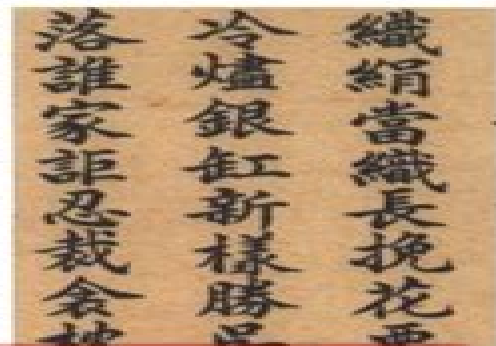 織絹當織長挽花
冷燼銀缸新樣勝
落誰家詎忍裁衾